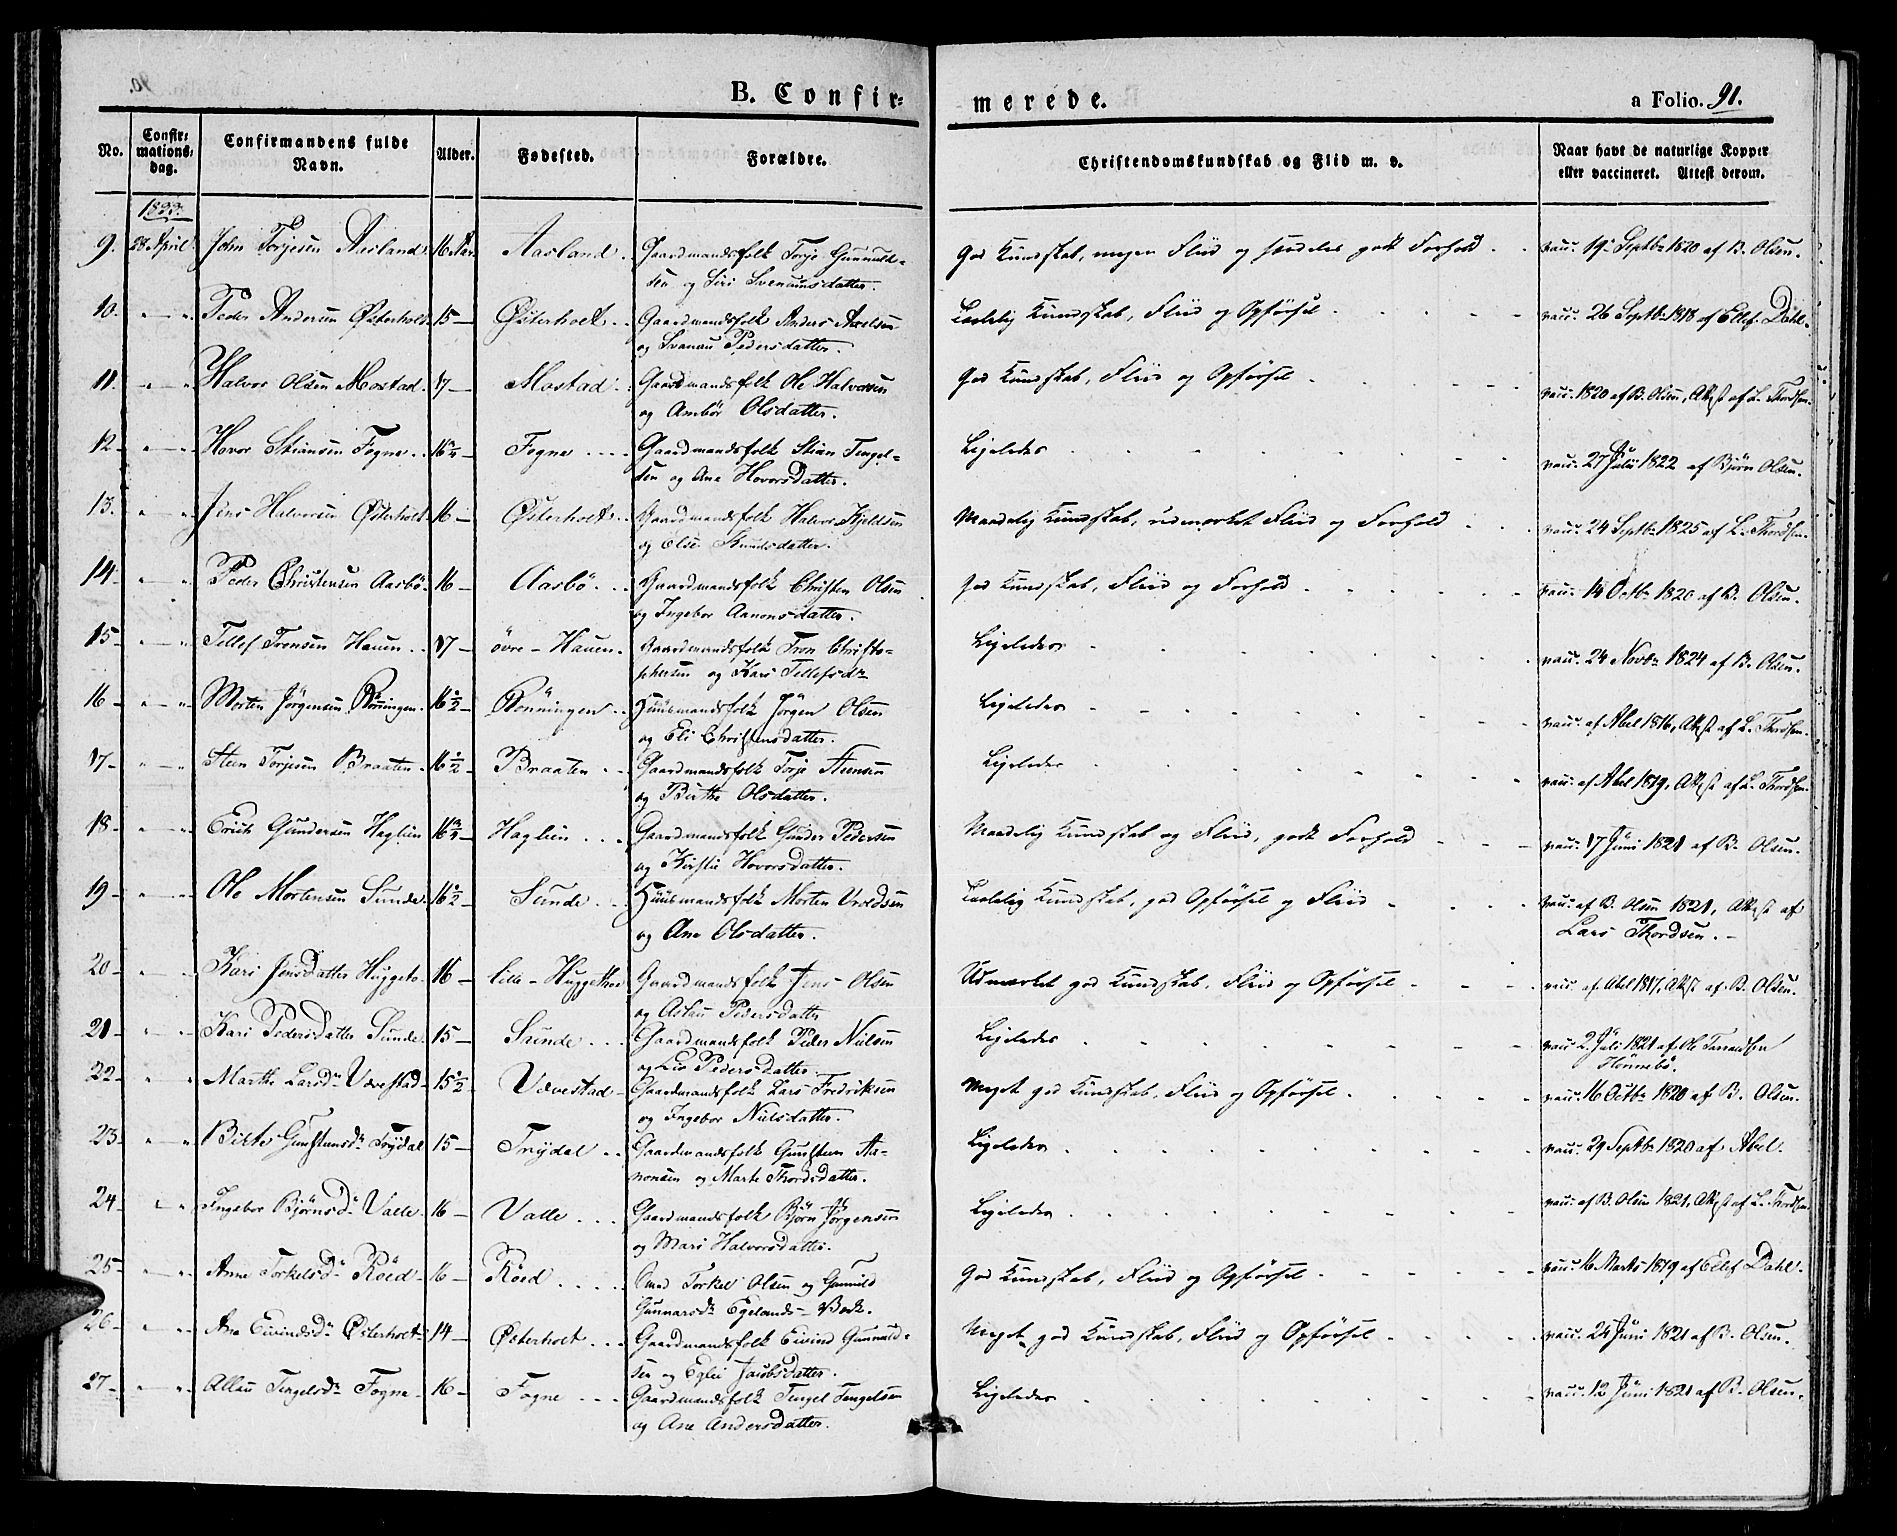 B. Confirmerede. a Folio. 91.
No. Confirmations-dag. Confirmandens fulde Navn. Alder. Fødested. Forældre. Christendomskundskab og Flid m. v. Naar havt de naturlige Kopper eller vaccineret. Attest derom.
1833.
9. 28 April John Torjesen Aasland. 16 Aar. Aasland. Gaardmandsfolk Torje Gunnuld- God Kundskab, megen Fliid og særdeles godt Forhold vacc. 19 Septbr 1820 af B. Olsen.
sen og Siri Svenumsdatter.
10. Peder Andersen Østerholt 15 Østerholt Gaardmandsfolk Anders Axelsen Taalelig Kundskab, Fliid og Opførsel vacc. 26 Septbr 1818 af Ellef Dahl.
og Svanau Pedersdatter.
11. Halvor Olsen Mostad. 17 Mostad Gaardmandsfolk Ole Halvorsen God Kundskab, Fliid og Opførsel vacc. 1820 af B. Olsen, Attest af L. Thordsen.
og Ambör Olsdatter.
12 Hovor Stiansen Fogne 16 3/4 Fogne Gaardmandsfolk Stian Tengel- Ligeledes vacc. 27 Julii 1822 af Bjørn Olsen.
sen og Ane Hovorsdatter.
13. Jens Halvorsen Østerholt 16 Østerholt Gaardmandsfolk Halvor Kjeldsen Maadelig Kundskab, udmærket Fliid og Forhold vacc. 24 Septbr 1825 af L. Thordsen.
og Else Knudsdatter.
14 Peder Christensen Aasbö 16 Aasbö Gaardmandsfolk Christen Olsen God Kundskab, Fliid og Forhold vacc. 14 Octbr 1820 af B. Olsen.
og Ingebor Aanonsdatter.
15 Tellef Tronsen Hauen 17 övre-Hauen. Gaardmandsfolk Tron Christo- Ligeledes vacc. 24 Novbr 1824 af B. Olsen.
phersen og Kari Tellefsdr
16 Morten Jörgensen Rönningen. 16 1/2 Rönningen Huusmandsfolk Jörgen Olsen Ligeledes vacc. af Abel 1816, Attest af L. Thordsen.
og Eli Christensdatter.
17 Steen Torjesen Braaten 16 1/2 Braaten Gaardmandsfolk Torje Steensen Ligeledes vacc. af Abel 1819, Attest af L. Thordsen.
og Birthe Olsdatter.
18 Erick Gundersen Haglien 16 3/4 Haglien Gaardmandsfolk Gunder Pedersen Maadelig Kundskab og Fliid, godt Forhold vacc. 17 Juni 1821 af B. Olsen.
og Kirstie Hovorsdatter.
19 Ole Mortensen Sunde. 16 1/2 Sunde Huusmandsfolk Morten Uvoldsen Taalelig Kundskab, god Opførsel og Fliid vacc. af B. Olsen 1821, Attest af
og Ane Olsdatter. Lars Thordsen.
20 Kari Jensdatter Huggeto. 16 lille-Huggethoe Gaardmandsfolk Jens Olsen Udmærket god Kundskab, Fliid og Opførsel vacc. af Abel 1817, Attest af B. Olsen.
og Aslau Pedersdatter
21 Kari Pedersdatter Sunde 15 Sunde Gaardmandsfolk Peder Nielsen Ligeledes vacc. 2 Juli 1821 af Ole Tarraldsen
og Liv Pedersdatter. Hönnebö.
22 Marthe Larsdr Vævestad 15 1/2 Vævestad Gaardmandsfolk Lars Fredriksen Meget god Kundskab, Fliid og Opførsel vacc. 16 Octbr 1820 af B. Olsen.
og Ingebor Nielsdatter.
23 Birte Gunstensdr Trydal 15 Trydal Gaardmandsfolk Gunsten Aa- Ligeledes vacc. 29 Septbr 1820 af Abel.
nonsen og Marte Thordsdatter.
24 Ingebor Bjørnsdr Valle 16 Valle Gaardmandsfolk Bjørn Jörgensen Ligeledes vacc. af B. Olsen 1821, Attest af L. Thordsen
og Mari Halvorsdatter.
25 Anne Torkelsdr Röed 16 Röed Torkel Olsen og Gunnild God Kundskab, Fliid og Opførsel vacc. 16 Marts 1819 af Ellef Dahl.
Gunnarsdr Egelands-Værk.
26 Ane Eivindsdr Østerholt 14 Østerholt Gaardmandsfolk Eivind Gunnuld- Meget god Kundskab, Fliid og Opførsel vacc. 24 Juni 1821 af B. Olsen.
sen og Eglei Jacobsdatter.
27 Allau Tengelsdr Fogne 16 Fogne Gaardmandsfolk Tengel Tengelsen Ligeledes vacc. 12 Juni 1821 af B. Olsen.
og Ane Andersdatter.